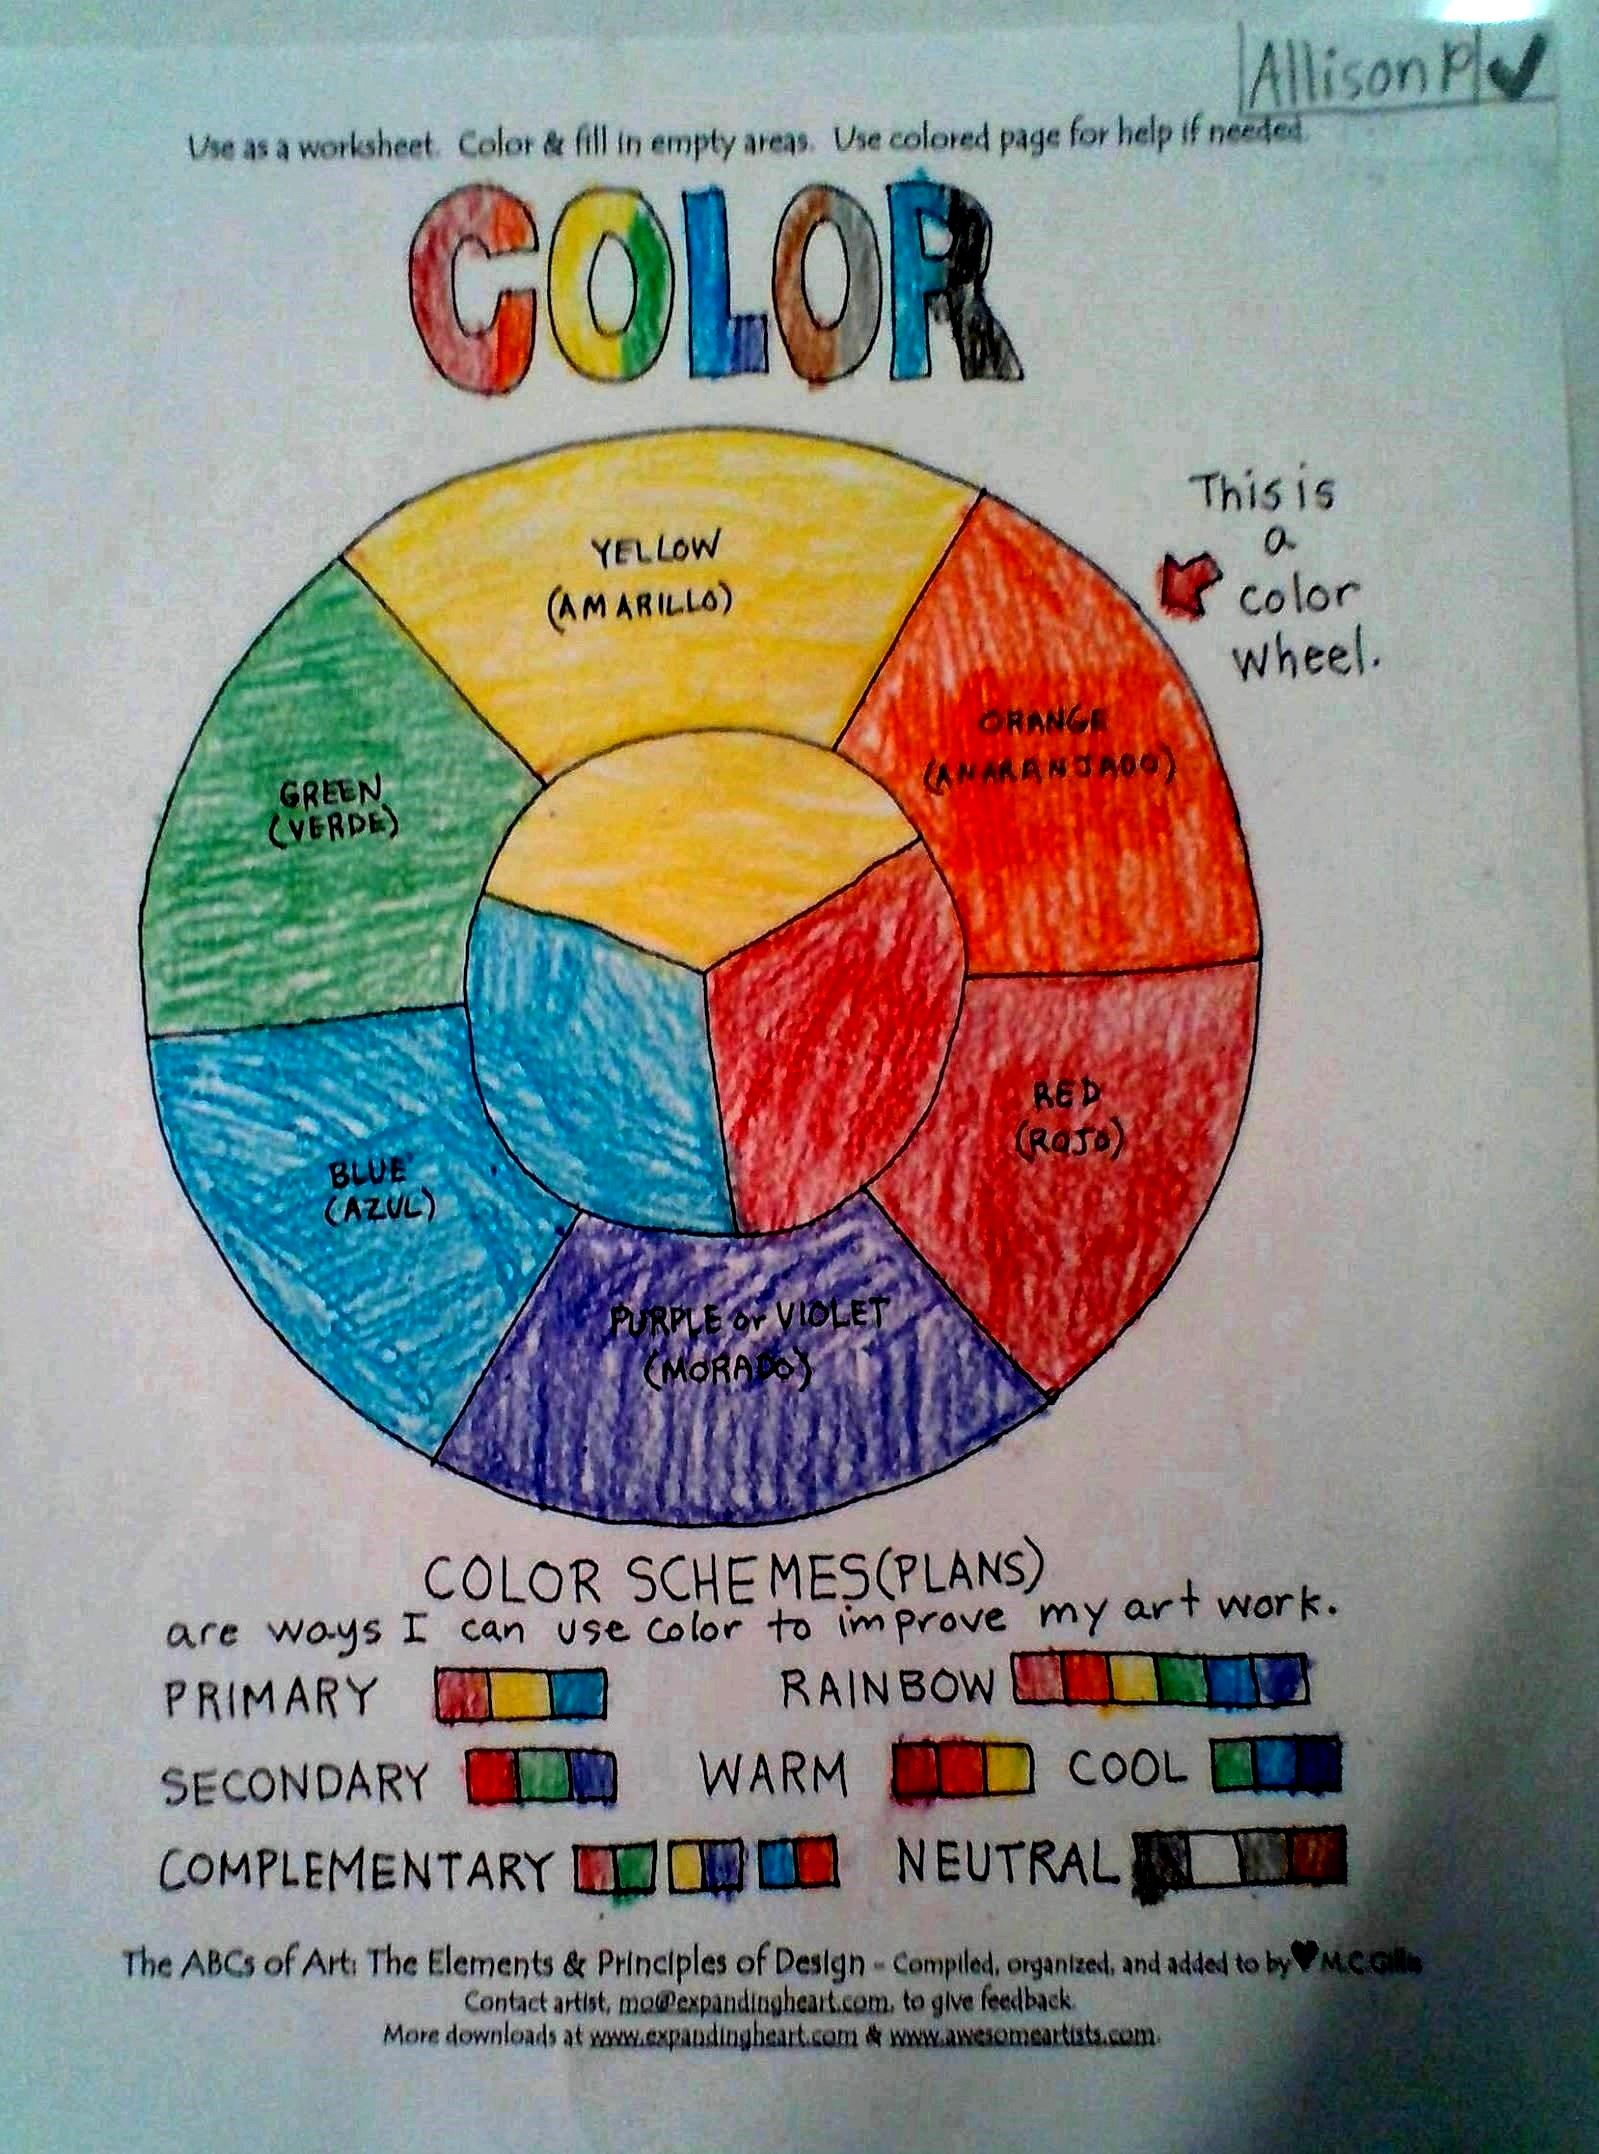 Allison P ✓
Use as a worksheet. Color & fill in empty areas. Use colored page for help if needed.
COLOR
This is
a
color
wheel.
YELLOW
(AMARILLO)
ORANGE
(ANARANJADO)
GREEN
(VERDE)
RED
(ROJO)
BLUE
(AZUL)
PURPLE or VIOLET
(MORADO)
COLOR SCHEMES(PLANS)
are ways I can use color to improve my art work.
PRIMARY RAINBOW
SECONDARY WARM COOL
COMPLEMENTARY NEUTRAL
The ABCs of Art: The Elements & Principles of Design - Compiled, organized, and added to by ♥ M.C.Gillis
Contact artist, mo@expandingheart.com, to give feedback.
More downloads at www.expandingheart.com & www.awesomeartists.com.